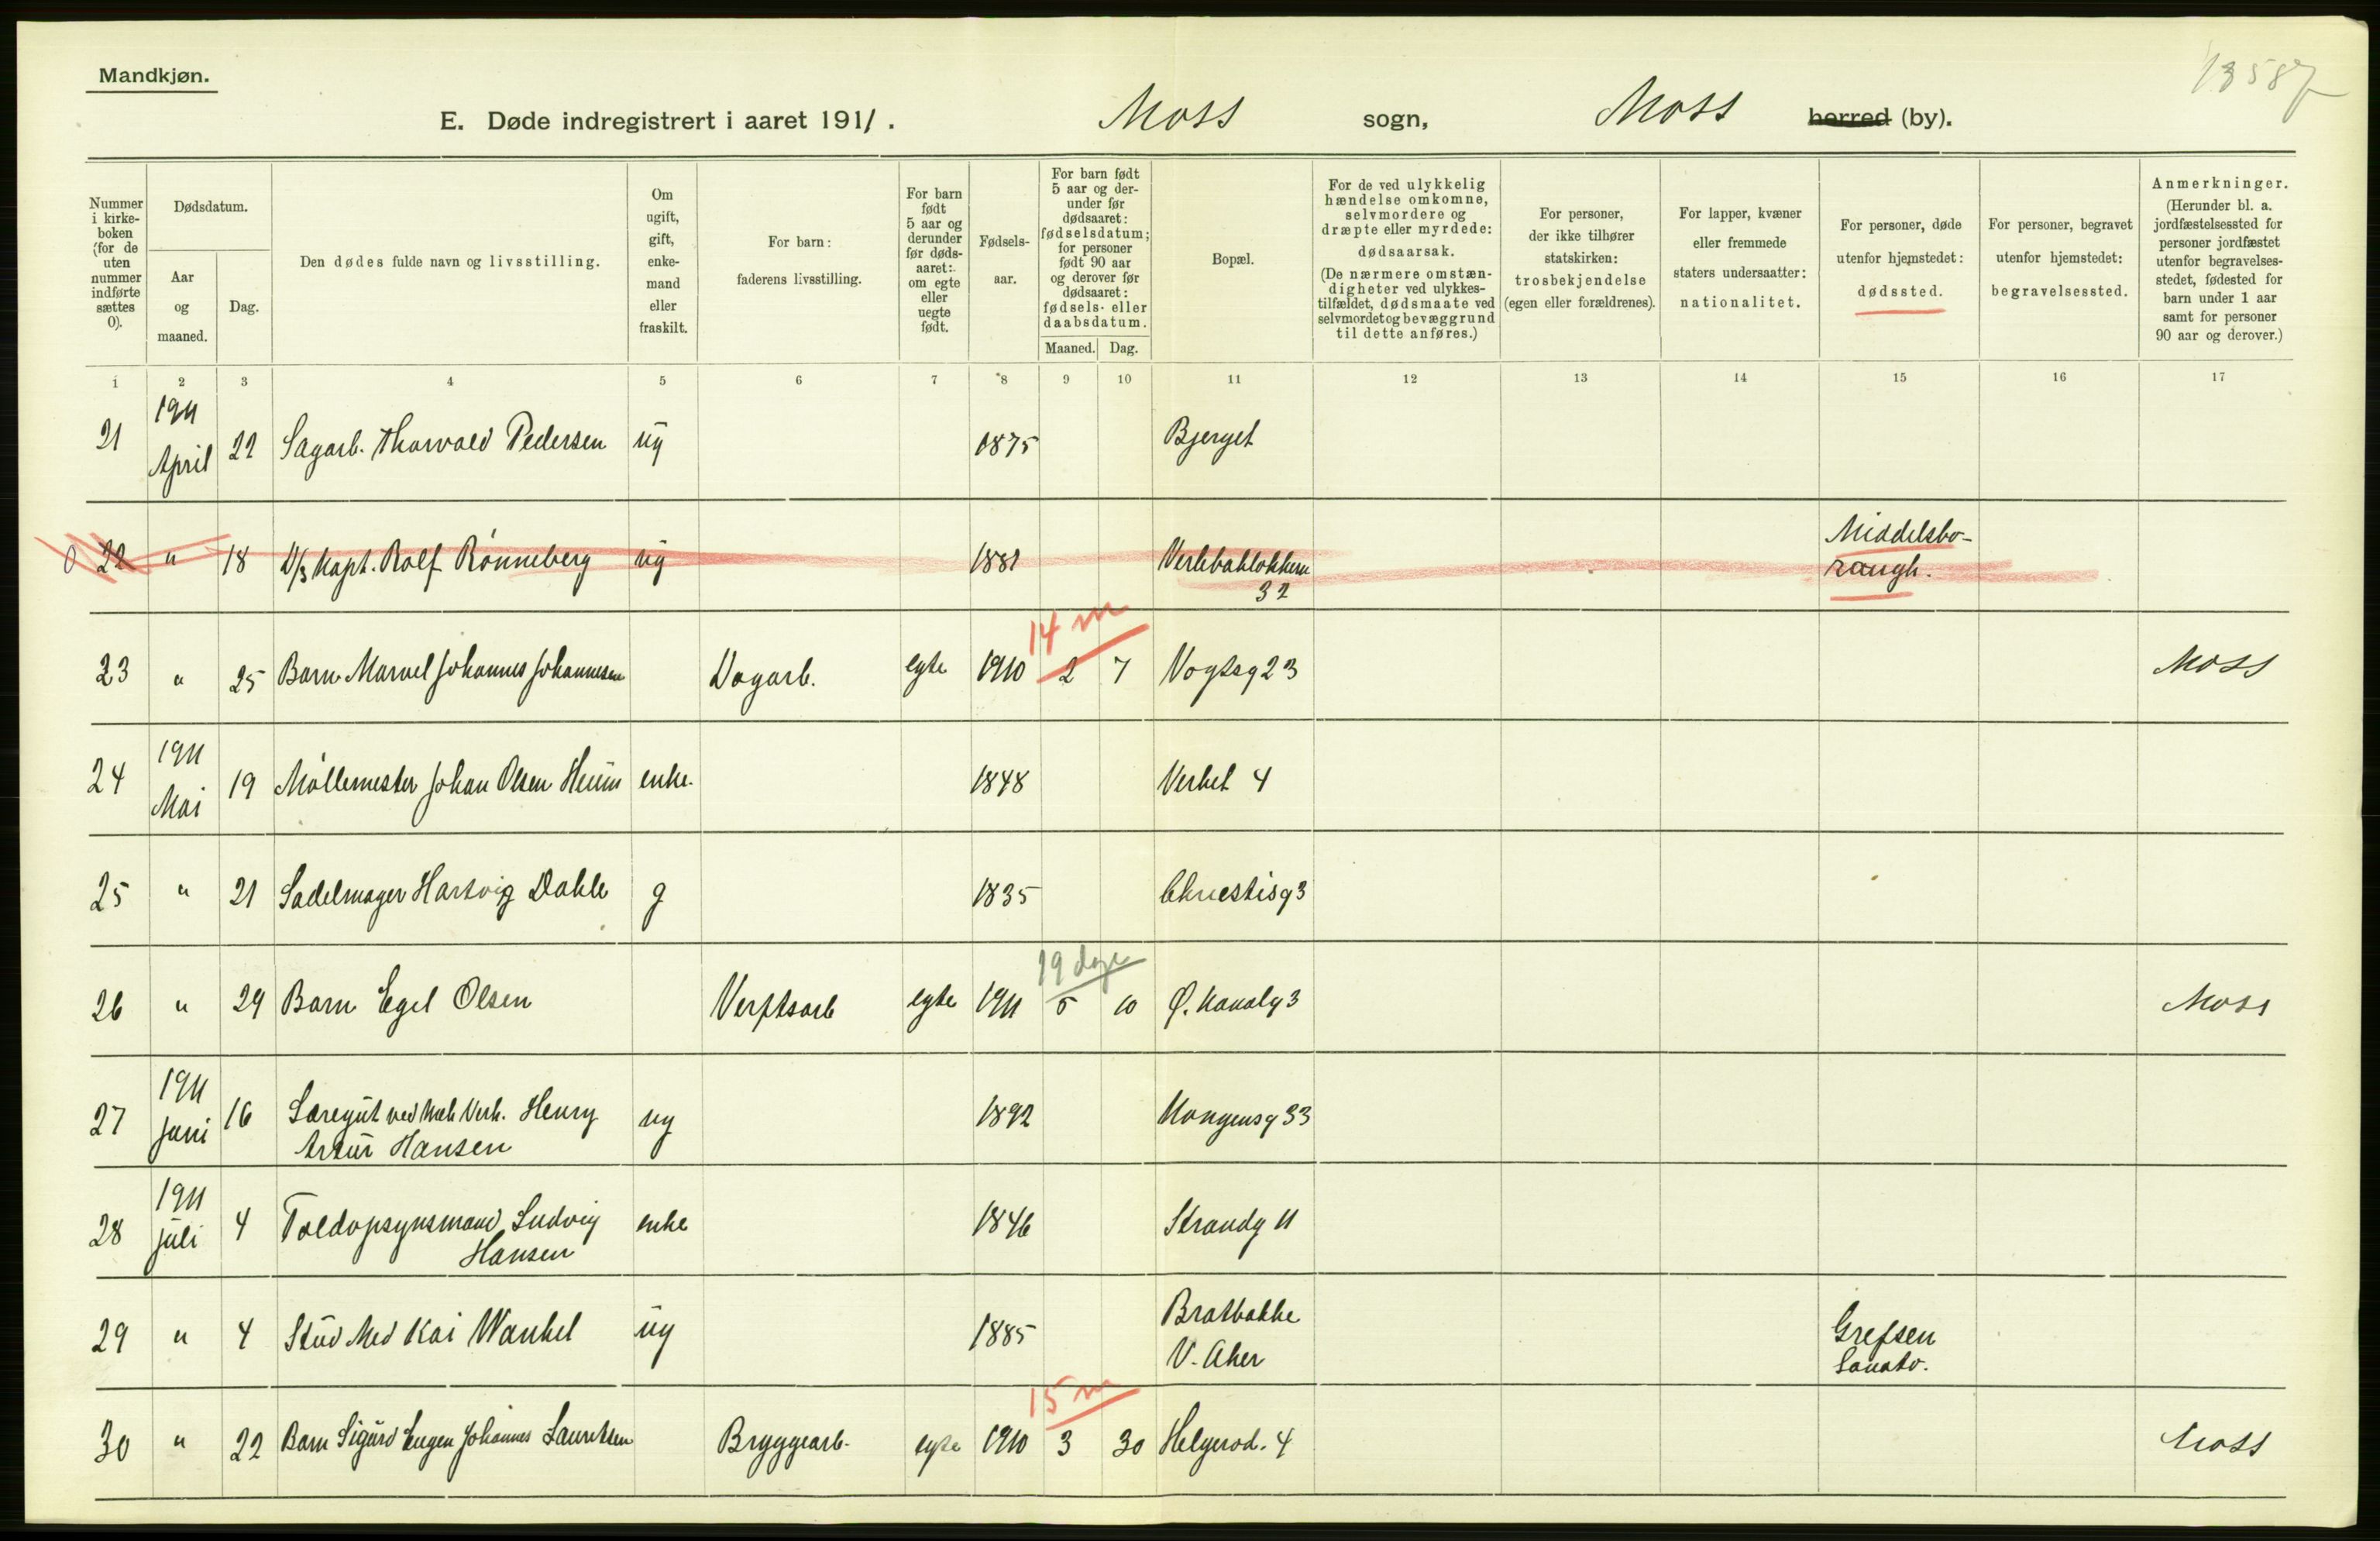 Mandkjøn.
13587
E. Døde indregistrert i aaret 1911.
Moss sogn, Moss herred (by).
Nummer i kirke-boken (for de uten nummer indførte sættes 0).
Dødsdatum.
Aar og maaned.
Dag.
Den dødes fulde navn og livsstilling.
Om ugift, gift, enke-mand eller fraskilt.
For barn: faderens livsstilling.
For barn født 5 aar og derunder før døds-aaret: om egte eller uegte født.
Fødsels-aar.
For barn født 5 aar og der-under før dødsaaret: fødselsdatum; for personer født 90 aar og derover før dødsaaret: fødsels- eller daabsdatum.
Maaned. Dag.
Bopæl.
For de ved ulykkelig hændelse omkomne, selvmordere og dræpte eller myrdede: dødsaarsak. (De nærmere omstæn-digheter ved ulykkes-tilfældet, dødsmaate ved selvmordet og bevæggrund til dette anføres.)
For personer, der ikke tilhører statskirken: trosbekjendelse (egen eller forældrenes).
For lapper, kvæner eller fremmede staters undersaatter: nationalitet.
For personer, døde utenfor hjemstedet: dødssted.
For personer, begravet utenfor hjemstedet: begravelsessted.
Anmerkninger. (Herunder bl. a. jordfæstelsessted for personer jordfæstet utenfor begravelses-stedet, fødested for barn under 1 aar samt for personer 90 aar og derover.)
1 2 3 4 5 6 7 8 9 10 11 12 13 14 15 16 17
21 1911 April 22 Sagarb. Thorvald Pedersen ug 1875 Bjerget
0 22 " 18 D/s Kapt. Rolf Rønneberg ug 1881 Verkbakløkken 32 Middelsbo-rough.
14 m
23 " 25 Barn Marvel Johannes Johannesen Dagarb. egte 1910 2 7 Vogtsg 23 Moss
24 1911 Mai 19 Møllemester Johan Olsen Heum enke. 1848 Verket 4
25 " 21 Sadelmager Hartvig Dahle g 1835 Chrestisg 3
19 dage
26 " 29 Barn Egil Olsen Verftsarb egte 1911 5 10 Ø. Kanalg 3 Moss
27 1911 Juni 16 Læregut ved Mek Verk. Henry Artur Hansen ug 1892 Kongensg 33
28 1911 Juli 4 Toldopsynsmand Ludvig Hansen enke 1846 Strandg 11
29 " 4 Stud Med Kai Wankel ug 1885 Bratbakke V. Aker Grefsen Sanato.
15 m
30 " 22 Barn Sigurd Eugen Johannes Lauritsen Bryggearb. egte 1910 3 30 Helgerød. 4 Moss